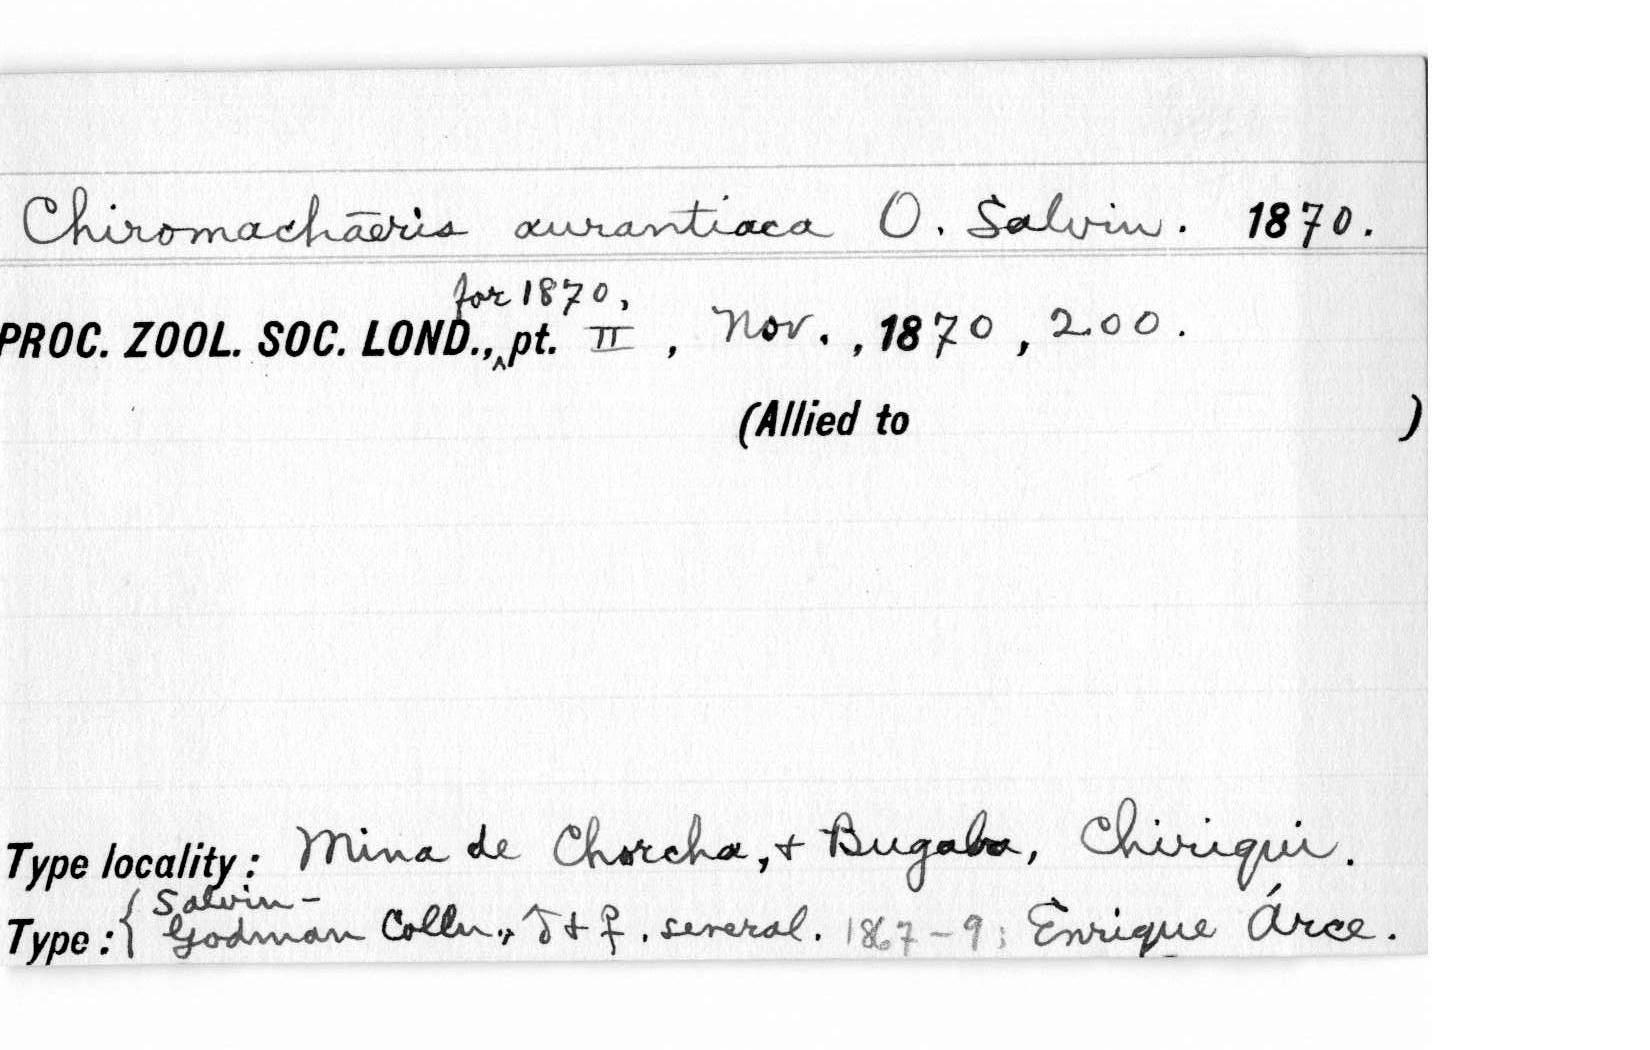 Chiromachāeris aurantiaca O. Salvin. 1870.
for 1870,
PROC. ZOOL. SOC. LOND., ^ pt. II, Nov., 1870, 200.
(Allied to )
Type locality: Mina de Chorcha, + Bugaba, Chiriqui.
Type: { Salvin-
Godman Colln., ♂ + ♀. several. 1867-9; Enrique Árce.